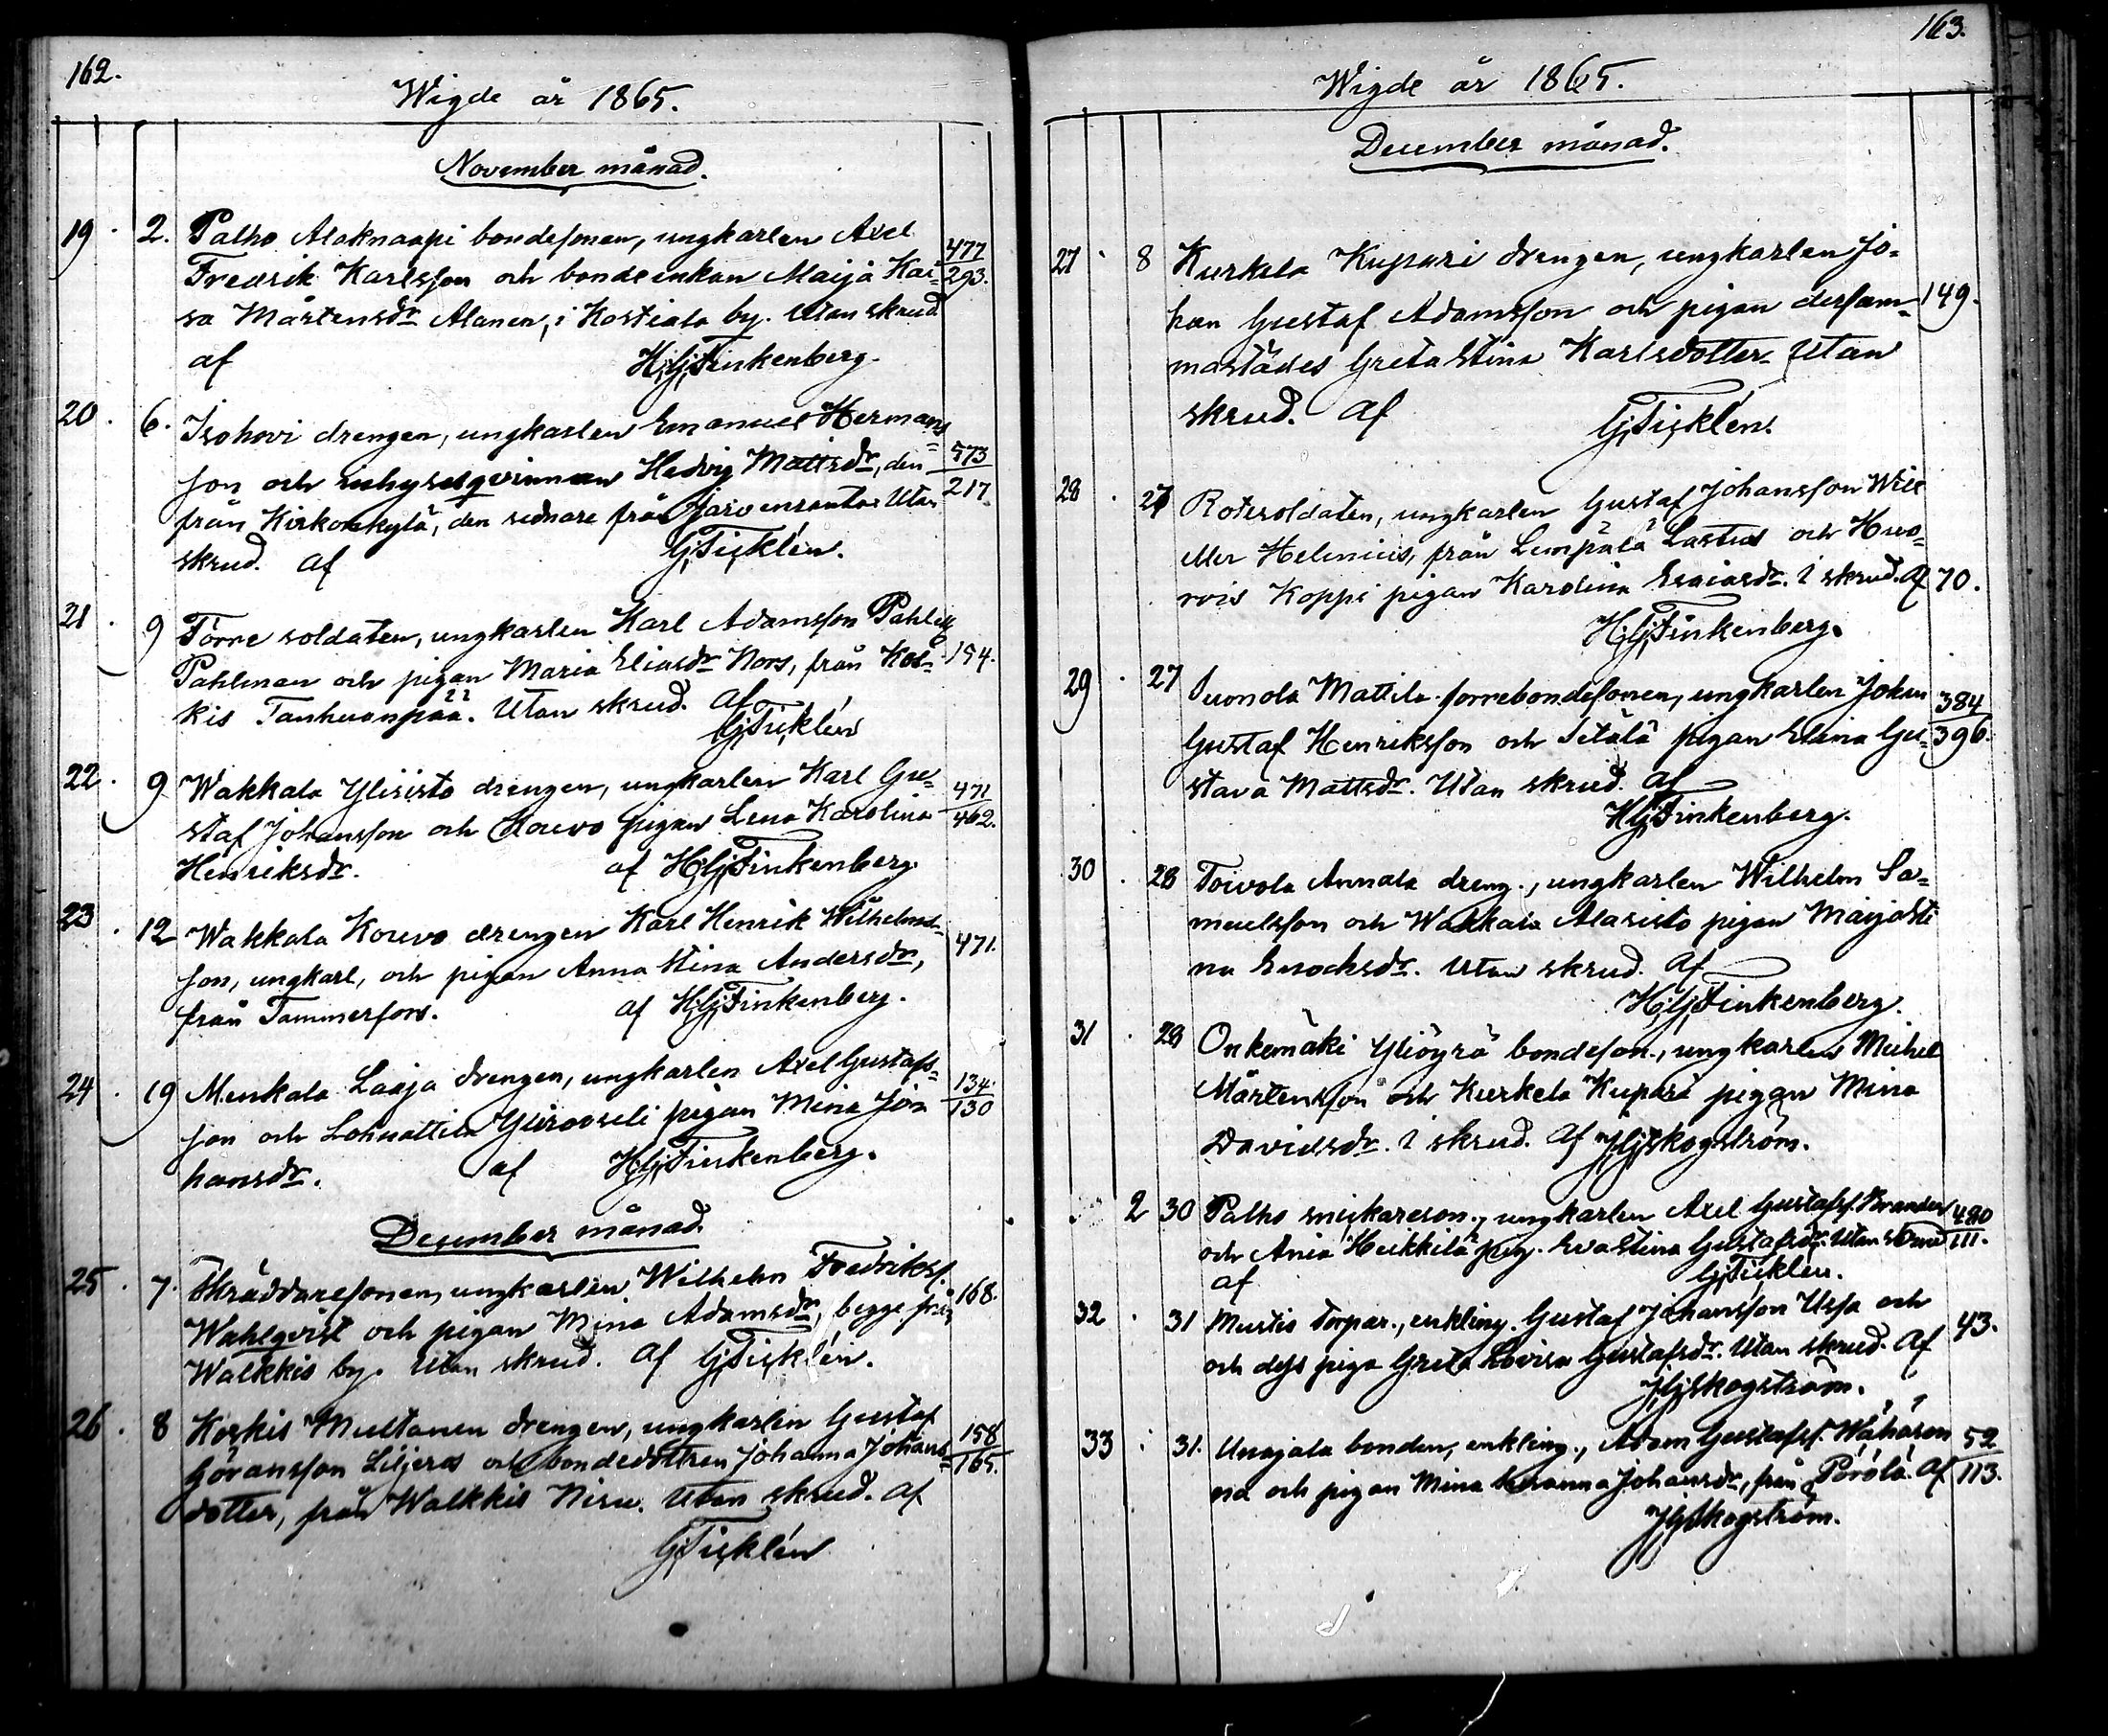 162.
Wigde år 1865.
November månad.
19. 2. Palho Alaknaapi bondesonen, ungkarlen Axel 477
Fredrik Karlsson och bondeenkan Maija Kai- 293.
sa Mårtensdr Alanen, i Kostiala by. Utan skrud
af H,G,Finkenberg.
20. 6. Isohovi drengen, ungkarlen Emanuel Hermans-
son och inhysesqvinnan Hedvig Mattsdr, den 573
från Kirkonkylä, den sednare från Jarvenranta Utan 217.
skrud. Af G,Ticklén.
21. 9 Förre soldaten, ungkarlen Karl Adamsson Pahlell
Pahlman och pigan Maria Eliasdr Nors, från Kos- 154.
kis Tanhuanpää. Utan skrud. Af
G,Ticklén
22. 9 Wakkala Ylisisto drengen, ungkarlen Karl Gu- 471
staf Johansson och Kouvo pigan Lena Karolina 462.
Henriksdr. af H,G,Finkenberg.
23. 12 Wakkala Kouvo drengen Karl Henrik Wilhelms-
son, ungkarl, och pigan Anna Stina Andersdr, 471.
från Tammerfors. af H,G,Finkenberg.
24. 19 Menkala Laaja drengen, ungkarlen Axel Gustafs- 134.
son och Lohnattila pigan Mina Jo- 130
hansdr. af H,G,Finkenberg.
December månad.
25. 7. Skräddaresonen, ungkarlen Wilhelm Fredriks.
Wahlqvist och pigan Mina Adamsdr, begge från 168.
Walkkis by. Utan skrud. Af G,Ticklén.
26. 8 Koskis Multanen drengen, ungkarlen Gustaf 158
Göransson Liljeros och bondedottren Johanna Johans- 165.
dotter, från Walkkis Niru. Utan skrud. Af
G,Ticklén
163.
Wigde år 1865.
December månad.
27. 8 Kurkela Kupari drengen, ungkarlen Jo-
han Gustaf Adamsson och pigan dersam- 149.
mastädes Greta Stina Karlsdotter. Utan
skrud. Af G,Ticklén.
28. 27 Rotesoldaten, ungkarlen Gustaf Johansson
eller Helenius, från Lempäälä Lastus och Huo-
vis Koppi pigan Karolina Esaiasdr. I skrud. Af 70.
H,G,Finkenberg.
29. 27 Suonola Mattila förrebondesonen, ungkarlen Johan 384
Gustaf Henriksson och Setälä pigan Elina Gu- 396.
stava Mattsdr. Utan skrud. Af
H,G,Finkenberg.
30. 28 Toivola Annala dreng., ungkarlen Wilhelm Sa-
muelsson och Wakkala Alasisto pigan Maija Sti
na Enochsdr. Utan skrud. Af
H,G,Finkenberg.
31. 28 Onkemäki Yliöyrä bondeson., ungkarlen Michel
Mårtensson och Kurkela Kupari pigan Mina
Davidsdr. I skrud. Af J,G,Skogström.
2 30 Palho snickareson., ungkarlen Axel Gustafss. Brander 480
och Ania Heikkilä pig. Eva Stina Gustafsdr. Utan skrud 111.
af G,Ticklén.
32. 31 Mustis torpar., enkling. Gustaf Johansson Ussa och
och dess piga Greta Lovisa Gustafsdr. Utan skrud. Af 43.
J,G,Skogström.
33. 31. Unajala bonden, enkling., Adam Gustafss. Wähäsen 52
na och pigan Mina Johanna Johansdr, från Pörölä. Af 113.
J,G,Skogström.